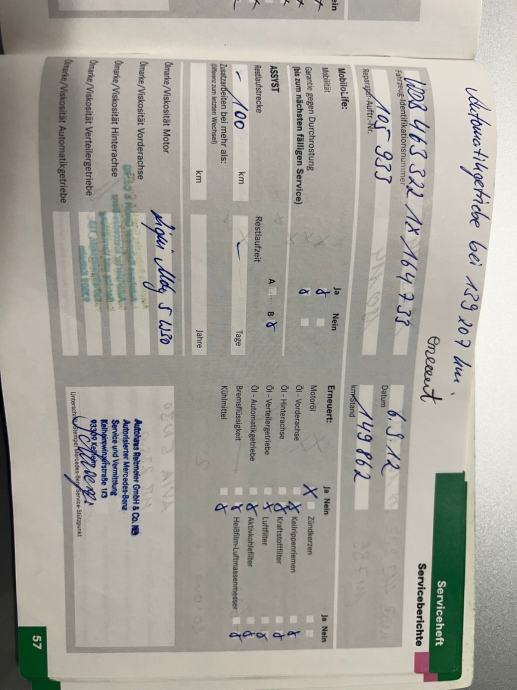 Serviceheft
Serviceberichte
Automatikgetriebe bei 139 207 km.
erneuert
WDB 463 322 1X 164 733
Fahrzeug-Identifikationsnummer
105 933
Reparatur-Auftr.-Nr.
6.9.12
Datum
149 862
km-Stand
MobiloLife:
Ja Nein
Mobilität
Garantie gegen Durchrostung
(bis zum nächsten fälligen Service)
ASSYST
A B
Restlaufstrecke
Restlaufzeit
- 100
km
Tage
Zusatzarbeiten bei mehr als:
(Differenz zum letzten Wechsel)
km
Jahre
Ölmarke/Viskosität Motor
5 W30
Ölmarke/Viskosität Vorderachse
Ölmarke/Viskosität Hinterachse
Ölmarke/Viskosität Verteilergetriebe
Ölmarke/Viskosität Automatikgetriebe
Erneuert:
Ja Nein
Ja Nein
Motoröl
Zündkerzen
Öl - Vorderachse
Keilrippenriemen
Öl - Hinterachse
Kraftstofffilter
Öl - Verteilergetriebe
Luftfilter
Öl - Automatikgetriebe
Aktivkohlefilter
Bremsflüssigkeit
Heißfilm-Luftmassenmesser
Kühlmittel
GmbH & Co. KG
Autorisierter Mercedes-Benz
Service und Vermittlung
57